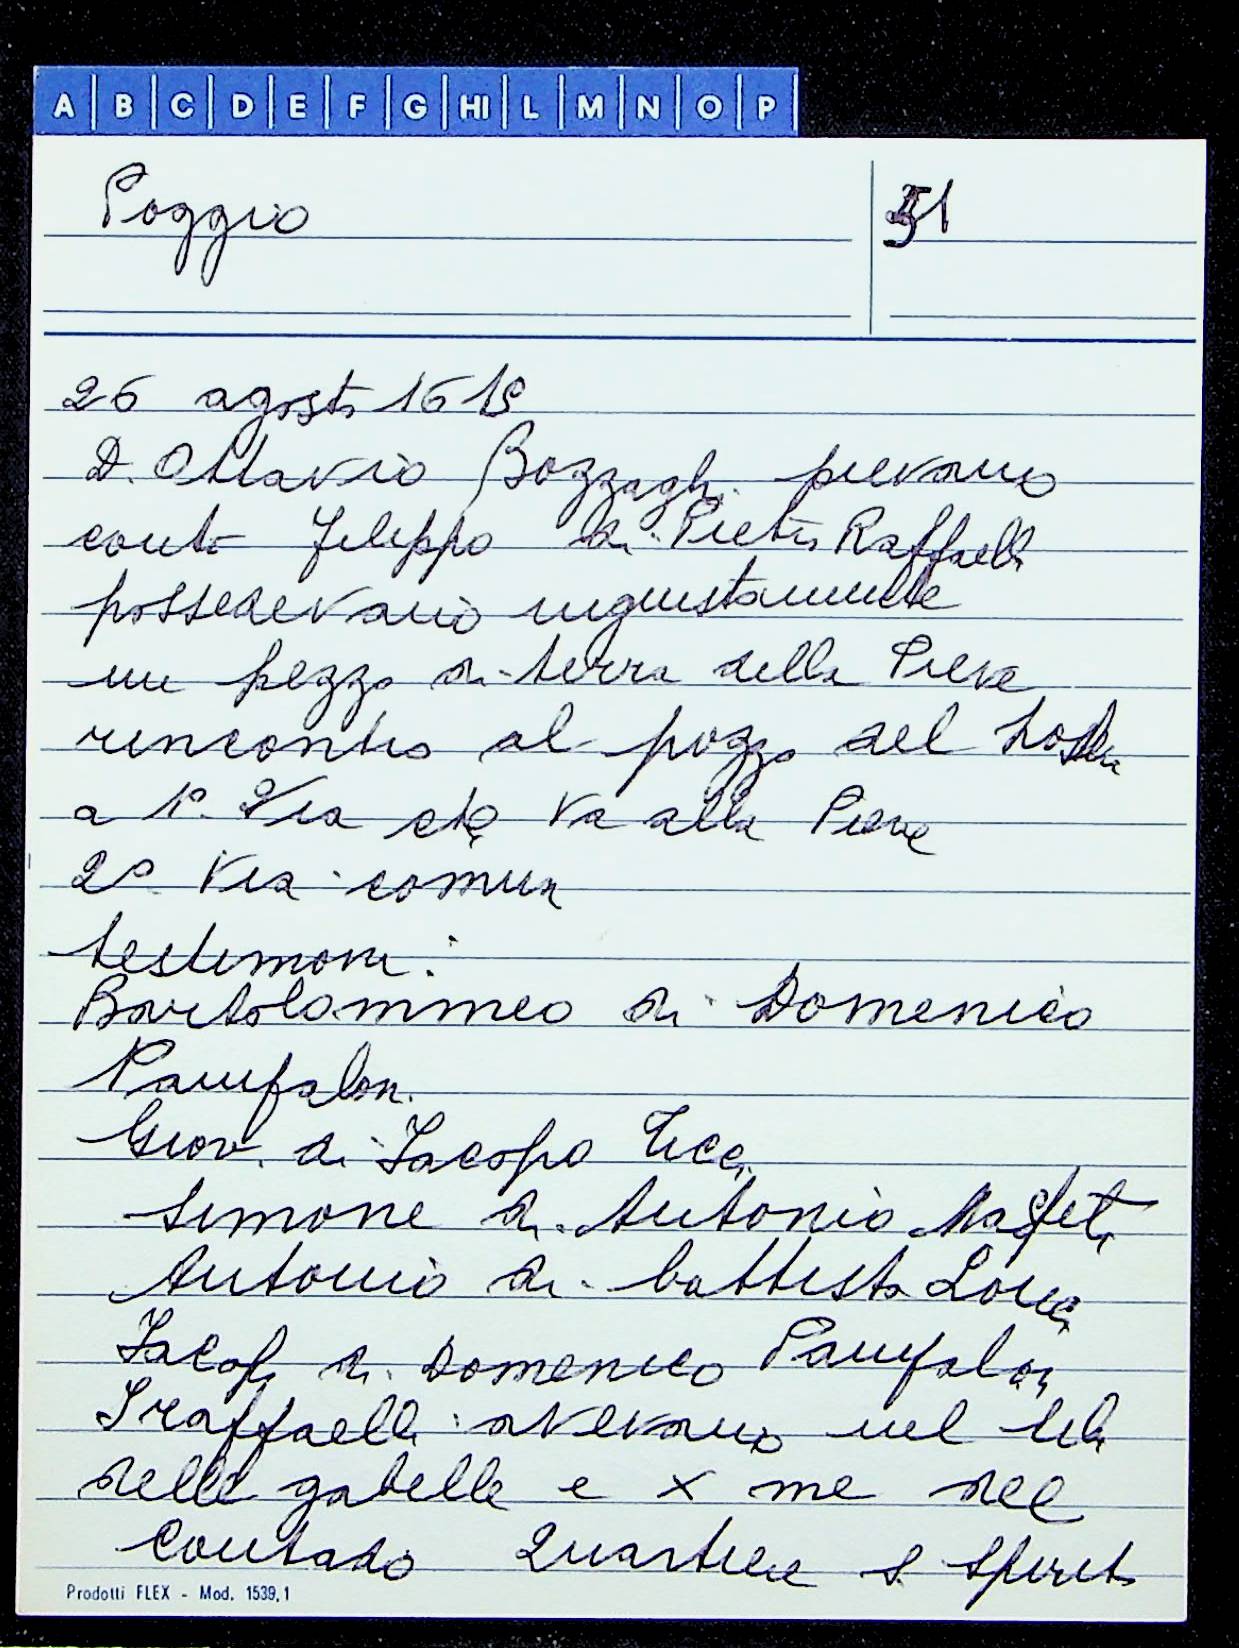 A B C D E F G HI L M N O P
Poggio
51
26 agosto 1619
D. Ottavio Bozzaghi pievano
conto Filippo di Pietro Raffaelli
possedevano ingiustamente
un pezzo di terra della Pieve
rincontro al pozzo del
a 1º Via che va alla Pieve
2º Via comun
testimoni:
Bartolommeo di Domenico
Pamfaloni
Giov. di Jacopo Ticci
Simone di Antonio
Antonio di battista
Jacopo di Domenico Pamfaloni
I raffaelli avevano nel
delle gabelle e x me del
contado Quartiere S. Spirito
Prodotti FLEX - Mod. 1539,1